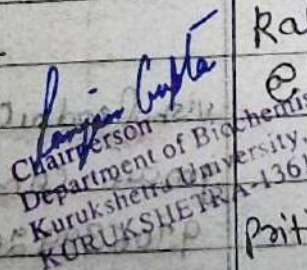 Ra
@
Gupta
Chairperson
Department of Biochemis
Kurukshetra University,
KURUKSHETRA-136
Priti